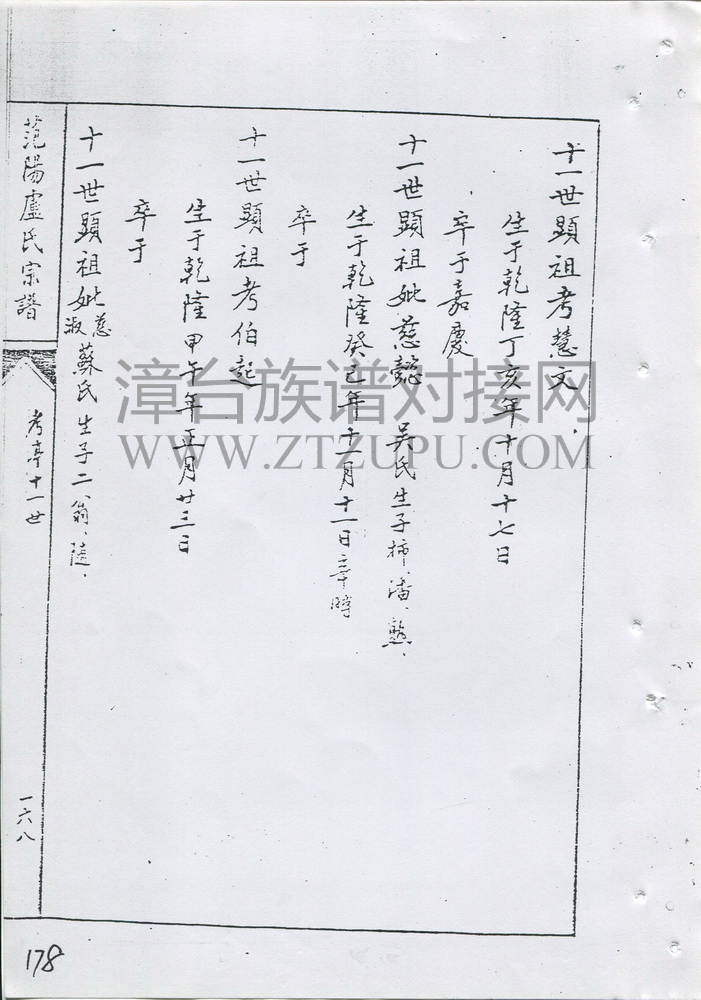 十一世顯祖考慧文、
生于乾隆丁亥年十月十七日
卒于嘉慶
十一世顯祖妣慈懿 吳氏生子柿、潘、
生于乾隆癸巳年十一月十一日辛時
卒于
十一世顯祖考伯起
生于乾隆甲午年正月廿三日
卒于
十一世顯祖妣慈淑蘇氏生子二、翁、陸、
范陽盧氏宗譜
考亭十一世
一六八
178
漳台族谱对接网
WWW.ZTZUPU.COM